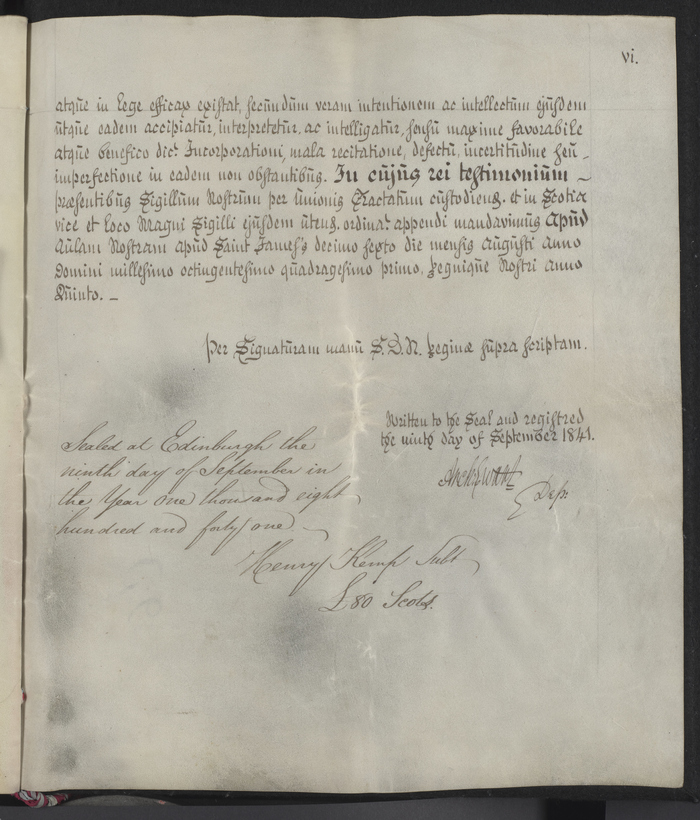 vi.
atque in Lege efficax existat, secundum veram intentionem ac intellectum ejusdem
utque eadem accipiatur, interpretetur, ac intelligatur, sensu maxime favorabile
atque benefico dict. Incorporationi, mala recitatione, defectu, incertitudine seu
imperfectione in eadem non obstantibus. In cujus rei testimonium –
præsentibus Sigillum Nostrum per Unionis Tractatum custodiend. et in Scotia
vice et loco Magni Sigilli ejusdem utend. ordinat. appendi mandavimus Apud
Aulam Nostram apud Saint James's decimo sexto die mensis Augusti Anno
Domini millesimo octingentesimo quadragesimo primo, Regnique Nostri anno
Quinto. –
Per Signaturam manu S.D.N. Reginæ supra scriptam.
Written to the Seal and registred
the ninth day of September 1841.
Dep:
Sealed at Edinburgh the
ninth day of September in
the Year one thousand eight
hundred and forty one –
Henry Kemp Subt
£80 Scots.